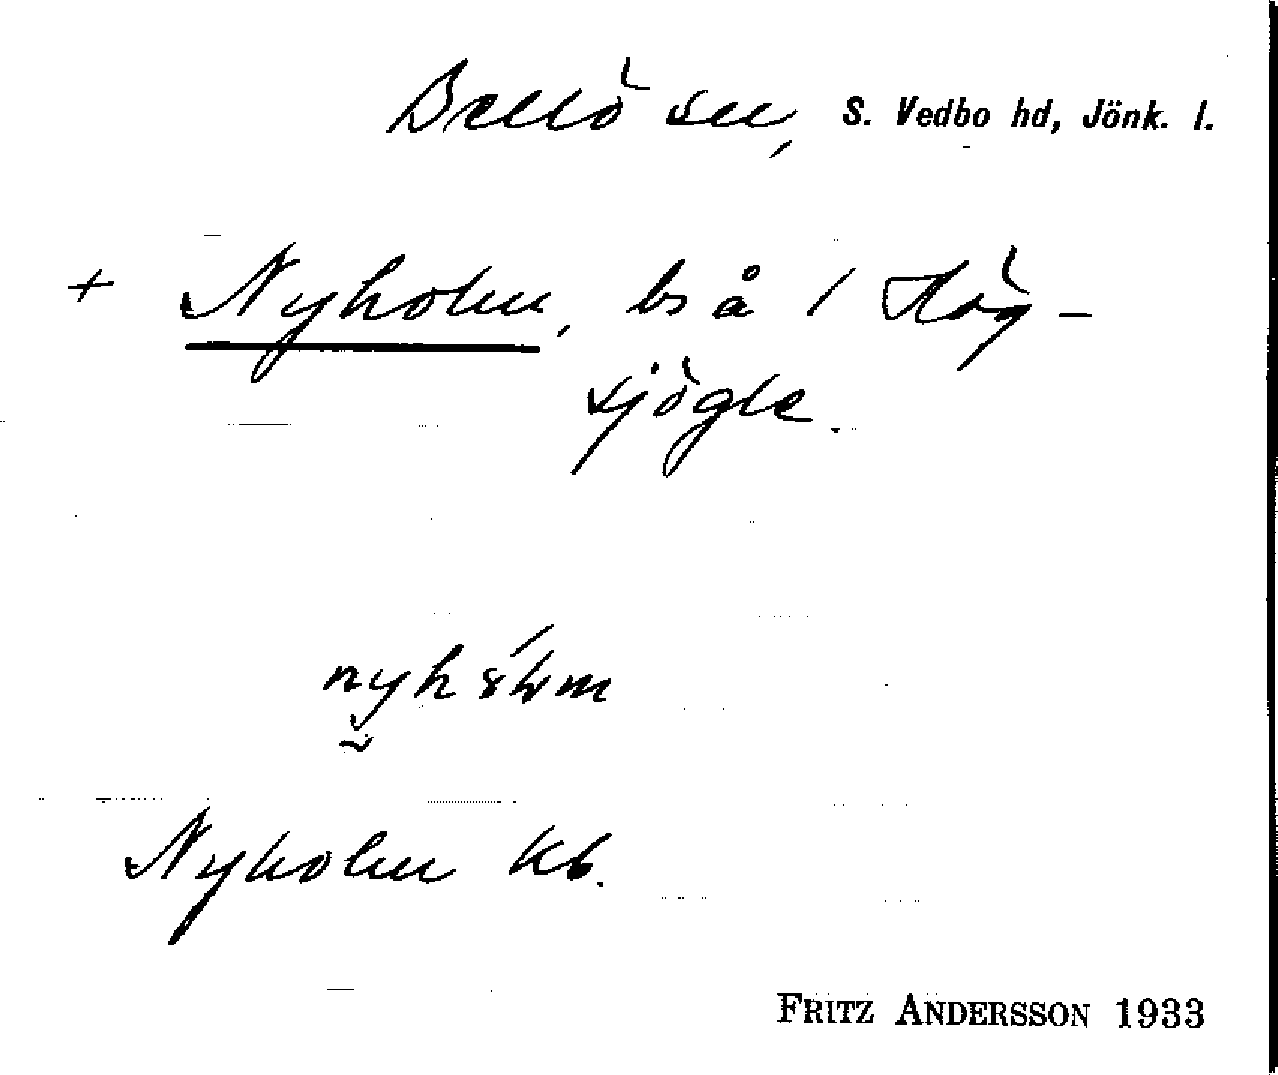 Bellö sn, S. Vedbo hd, Jönk. l.
+ Nyholm, bs å 1 Hög-
sjögle.
Nyholm kb.
FRITZ ANDERSSON 1933